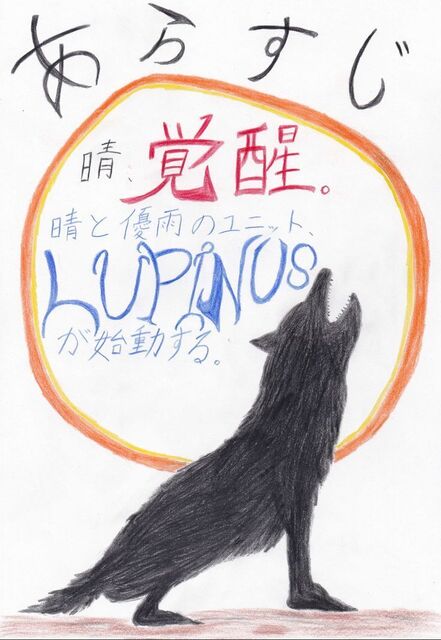 あらすじ
晴、覚醒。
晴と優雨のユニット、
LUPINUS
が始動する。